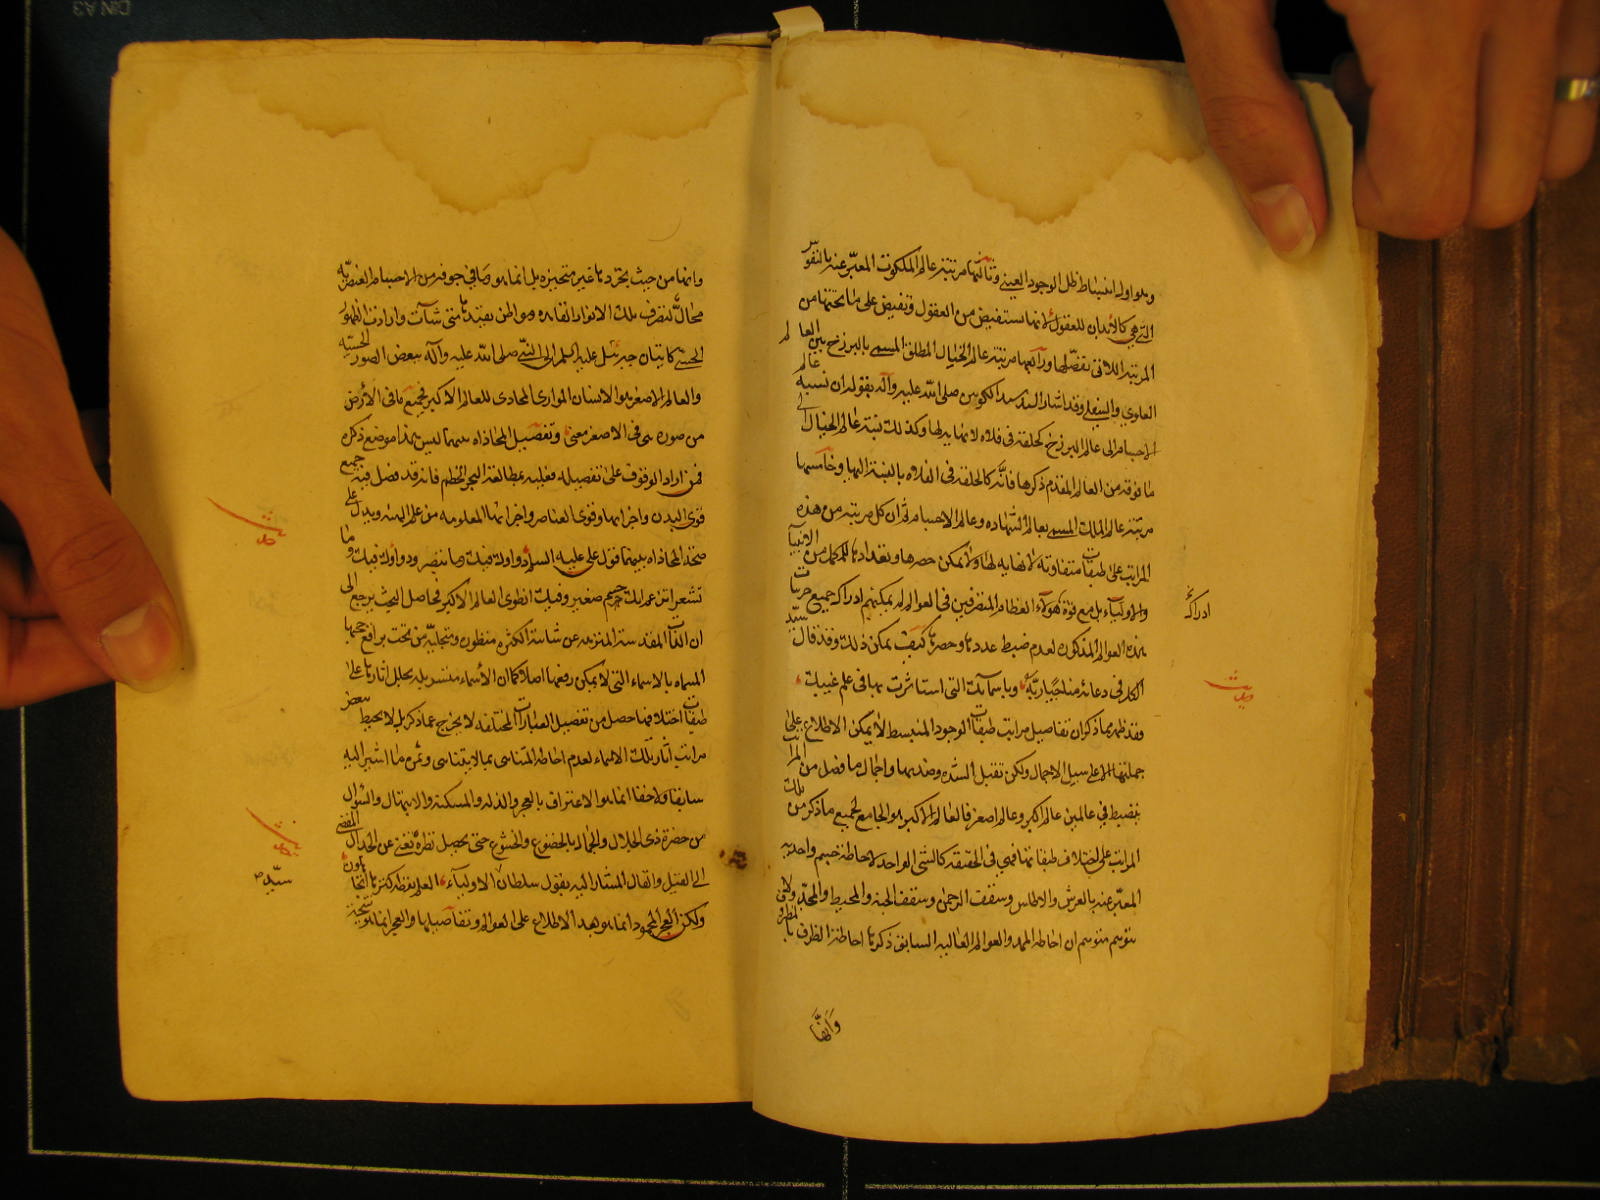 وهو اول انبساط ظل الوجود العيني وثالثها مرتبة عالم الملكوت المعبّر عنه بالنفوس
التي هي كالأبدان للعقول لانها تستفيض من العقول وتفيض على ما تحتها من
المرتبة اللاتي تفضلها ورابعها مرتبة عالم الخيال المطلق المسمى بالبرزخ بين العالم
العلوي والسفلي وقد اشار اليه سيد الكونين صلى الله عليه وآله بقوله ان نسبة عالم
الاجسام الى عالم البرزخ كحلقة في فلاة لا نهاية لها وكذلك نسبة عالم الخيال الى
ما فوقه من العالم المقدم ذكرها فانّه كالحلقة في الفلاة بالنسبة اليها وخامسها
مرتبة عالم الملك المسمى بعالم الشهادة وعالم الاجسام ثم ان كل مرتبة من هذه
المراتب على طبقات متفاوتة لا نهاية لها ولا يمكن حصرها وتعدادها للكمل من الانبياء
والاولياء بل مع قوة هؤلاء العظام المتصرفين في العوالم لم يمكنهم ادراك جميع جزئيات
ادراك
هذه العوالم المذكورة لعدم ضبط عددها وحصرها كيف يمكن ذلك وقد قال سيّد
الكل في دعائه مناجيا ربّه وباسمائك التي استاثرت بها في علم غيبك
حديث
فقد ظهر مما ذكر ان تفاصيل مراتب طبقات الوجود المنبسط لا يمكن الاطلاع على
جملتها الا على سبيل الاجمال ولكن تقبل الشدة وضدها واجمال ما فضل من المراتب
ينضبط في عالمين عالم اكبر وعالم اصغر فالعالم الاكبر هو الجامع لجميع ما ذكر من تلك
المراتب على اختلاف طبقاتها فهي في الحقيقة كالشئ الواحد لاحاطة جسم واحد به
المعبّر عنه بالعرش والاطلس وسقف الرحمن وسقف الجنة والمحيط والمحدّد ولا
يتوهم متوهم ان احاطة المحدد والعوالم العالية السابق ذكرها احاطة الظرف بالمظروف
وانها
وانها من حيث تجردها غير متحيزة بل انما هو صافي جوفه من الاجسام العنصريّة
محالّ لتصرف تلك الانوار القاهرة ومواطن تقيّدها متى شآءت وارادت الظهور
الحسي كاتيان جبرئيل عليه السلم الى النبي صلى الله عليه وآله ببعض الصور الحسيّة
والعالم الاصغر هو الانسان الموازي المحاذي للعالم الاكبر فجميع ما في الأرض
من صورة هي في الاصغر معنى وتفصيل المحاذاة بينهما ليس هذا موضع ذكره
فمن اراد الوقوف على تفصيله فعليه بمطالعة البحر الخضم فانه قد فصل فيه جميع
قوى البدن واجزائها وقوى العناصر واجزائها المعلومة من علم الهيئة ويدل على
صحة المحاذاة بينهما قول علي عليه السلم دواؤك فيك وما تبصر وداؤك فيك وما
تشعر اتزعم انك جرم صغير وفيك انطوى العالم الاكبر فحاصل البحث يرجع الى
ان الذات المقدسة المنزهة عن شائبة الكثرة منظورة ومتجلية من تحت براقع حجبها
المسماة بالاسماء التي لا يمكن رفعها اصلا كما ان الأسماء متستره بجلل اثارها على
طبقات اختلافها حصل من تفصيل العبارات المختلفة لا يخرج عما ذكر بل لا يحيط ببعض
مراتب آثار تلك الاسماء لعدم احاطة المتناهي بما لا يتناهى وثمرة ما اشير اليه
سابقا ولاحقا انما هو الاعتراف بالعجز والذلة والمسكنة والابتهال والسؤال
من حضرة ذي الجلال والجمال بالخضوع والخشوع حتى يحصل نظرة تغني عن الجدال المفضي
الى القيل والقال المشار اليه بقول سلطان الاولياء العلم نقطة كثرها الجاهلون
سيّد
ولكن العجز المحمود انما هو بعد الاطلاع على العوالم وتفاصيلها والعجز انما هو نتيجة